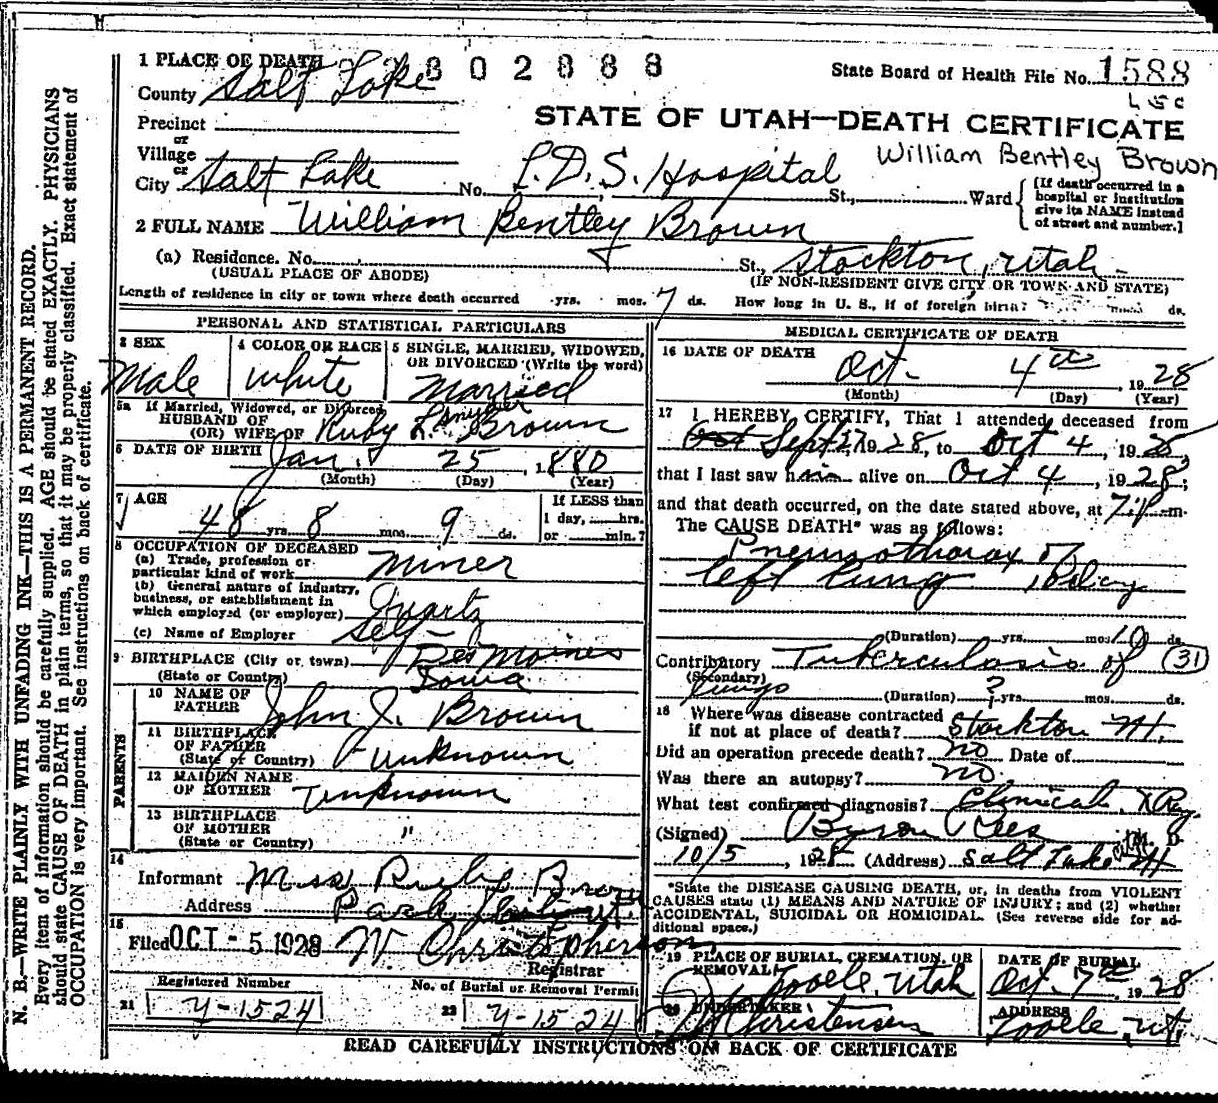 1 PLACE OF DEATH 2802888
State Board of Health File No. 1588
County Salt Lake
LSC
STATE OF UTAH—DEATH CERTIFICATE
Precinct
or
Village
William Bentley Brown
or
City Salt Lake No. L.D.S. Hospital St., Ward
[If death occurred in a
hospital or institution
give its NAME instead
of street and number.]
2 FULL NAME William Bentley Brown
(a) Residence. No. St., Stockton, Utah
(USUAL PLACE OF ABODE) (IF NON-RESIDENT GIVE CITY OR TOWN AND STATE)
Length of residence in city or town where death occurred yrs. mos. 7 ds. How long in U. S., if of foreign birth? yrs. mos. ds.
PERSONAL AND STATISTICAL PARTICULARS
3 SEX
Male
4 COLOR OR RACE
White
5 SINGLE, MARRIED, WIDOWED,
OR DIVORCED (Write the word)
Married
5a If Married, Widowed, or Divorced
HUSBAND OF
(OR) WIFE OF Ruby L. Snyder Brown
6 DATE OF BIRTH Jan. 25, 1880
(Month) (Day) (Year)
7 AGE
48 yrs. 8 mos. 9 ds.
If LESS than
1 day, hrs.
or min.?
8 OCCUPATION OF DECEASED
(a) Trade, profession or
particular kind of work Miner
(b) General nature of industry,
business, or establishment in
which employed (or employer) Quartz
(c) Name of Employer Self
9 BIRTHPLACE (City or town) Des Moines
(State or Country) Iowa
PARENTS
10 NAME OF
FATHER John J. Brown
11 BIRTHPLACE
OF FATHER
(State or Country) Unknown
12 MAIDEN NAME
OF MOTHER Unknown
13 BIRTHPLACE
OF MOTHER "
(State or Country)
14
Informant Mrs Ruby Brown
Address Park
15
Filed OCT - 5 1928 W. Christopherson
Registrar
Registered Number
21 Y-1524
No. of Burial or Removal Permit
22 Y-1524
MEDICAL CERTIFICATE OF DEATH
16 DATE OF DEATH
Oct. 4th, 1928
(Month) (Day) (Year)
17 I HEREBY CERTIFY, That I attended deceased from
Oct Sept 27, 1928, to Oct 4, 1928,
that I last saw him alive on Oct 4, 1928;
and that death occurred, on the date stated above, at 7:1 P.m.
The CAUSE DEATH* was as follows:
Pneumothorax of
left lung
(Duration) yrs. mos. 10 ds.
Contributory Tuberculosis of (31)
(Secondary)
lungs (Duration) ? yrs. mos. ds.
18 Where was disease contracted
if not at place of death? Stockton Ut.
Did an operation precede death? no Date of
Was there an autopsy? no.
What test confirmed diagnosis? Clinical, X Ray
(Signed) Byron Rees
10/5, 1928 (Address) Salt Lake City Ut
*State the DISEASE CAUSING DEATH, or, in deaths from VIOLENT
CAUSES state (1) MEANS AND NATURE OF INJURY; and (2) whether
ACCIDENTAL, SUICIDAL OR HOMICIDAL. (See reverse side for ad-
ditional space.)
19 PLACE OF BURIAL, CREMATION, OR
REMOVAL
Tooele, Utah
DATE OF BURIAL
Oct. 7th, 1928
20 UNDERTAKER
Christensen
ADDRESS
Tooele, Ut.
READ CAREFULLY INSTRUCTIONS ON BACK OF CERTIFICATE
N. B.—WRITE PLAINLY WITH UNFADING INK—THIS IS A PERMANENT RECORD.
Every item of information should be carefully supplied. AGE should be stated EXACTLY. PHYSICIANS
should state CAUSE OF DEATH in plain terms, so that it may be properly classified. Exact statement of
OCCUPATION is very important. See instructions on back of certificate.